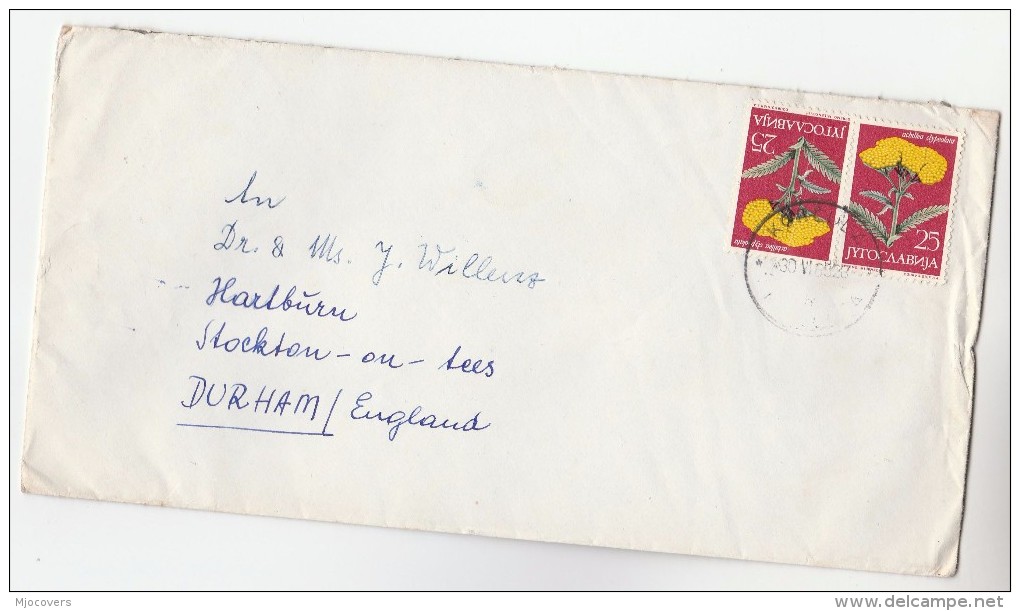 An
Dr. & Ms. J. Willenz
Hartburn
Stockton-on-tees
DURHAM / England
25
ЈУГОСЛАВИЈА
achillea clypeolata
achillea clypeolata
25
ЈУГОСЛАВИЈА
30 VI
Mjocovers
delcampe.net